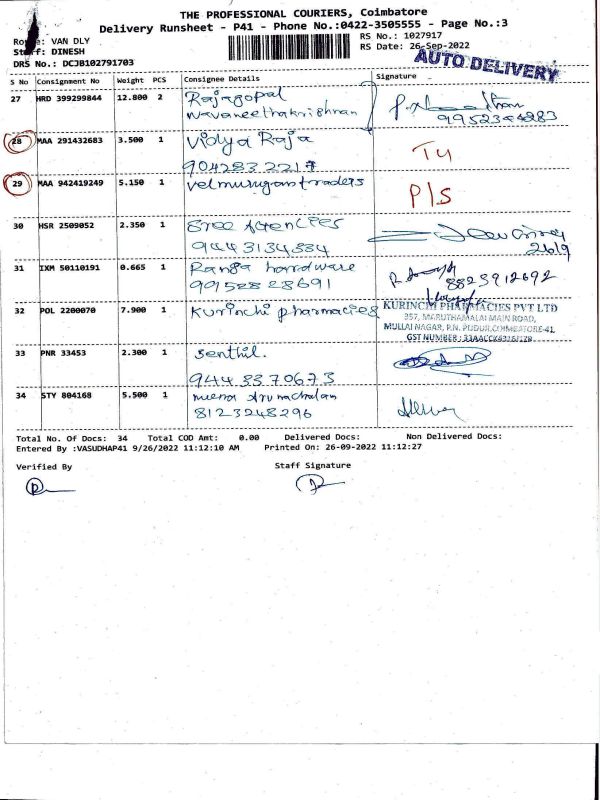 THE PROFESSIONAL COURIERS, Coimbatore
Delivery Runsheet - P41 - Phone No.:0422-3505555 - Page No.:3
VAN DLY
RS No.: 1027917
DINESH
RS Date: 26-Sep-2022
DRS No.: DCJB102791703
AUTO DELIVERY
S No Consignment No Weight PCS Consignee Details Signature
27 HRD 399299844 12.800 2 Rajagopal
Navaneethakrishnan
28 MAA 291432683 3.500 1 Vidya Raja
9042832217
29 MAA 942419249 5.150 1 velmurugan traders P/S
30 HSR 2509052 2.350 1 Sree Agencies
9443134334 26/9
31 IXM 50110191 0.665 1 Ranga hardware
9015828691 8823912692
32 POL 2200070 7.900 1 Kurinchi pharmacies
KURINCHI PHARMACIES PVT LTD
357, MARUTHAMALAI MAIN ROAD,
MULLAI NAGAR, P.N. PUDUR, COIMBATORE-41.
33 PNR 33453 2.300 1 Senthil.
9443370673
34 STY 804168 5.500 1 meena Arunachalam
8123248296
Total No. Of Docs: 34 Total COD Amt: 0.00 Delivered Docs: Non Delivered Docs:
Entered By :VASUDHAP41 9/26/2022 11:12:10 AM Printed On: 26-09-2022 11:12:27
Verified By Staff Signature